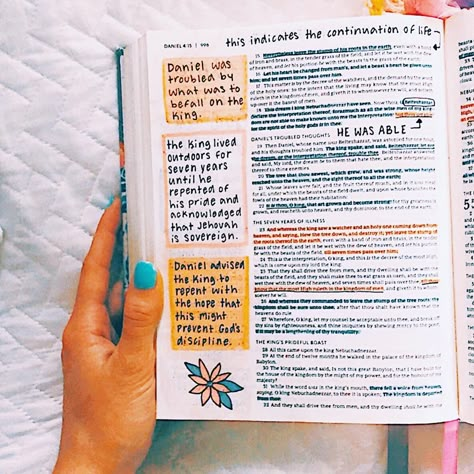 DANIEL 4:15 | 996
this indicates the continuation of life
Daniel was
troubled by
what was to
befall on the
king.
the king lived
outdoors for
seven years
until he
repented of
his pride and
acknowledged
that Jehovah
is sovereign.
Daniel advised
the king to
repent with
the hope that
this might
prevent God's
discipline.
15 Nevertheless leave the stump of his roots in the earth, even with a band
of iron and brass, in the tender grass of the field; and let it be wet with the dew
of heaven, and let his portion be with the beasts in the grass of the earth:
16 Let his heart be changed from man's, and let a beast's heart be given unto
him; and let seven times pass over him.
17 This matter is by the decree of the watchers, and the demand by the word
of the holy ones: to the intent that the living may know that the most High
ruleth in the kingdom of men, and giveth it to whomsoever he will, and setteth
up over it the basest of men.
18 This dream I king Nebuchadnezzar have seen. Now thou, O Belteshazzar,
declare the interpretation thereof, forasmuch as all the wise men of my kingdom
are not able to make known unto me the interpretation: but thou art able;
for the spirit of the holy gods is in thee.
DANIEL'S TROUBLED THOUGHTS
HE WAS ABLE
19 Then Daniel, whose name was Belteshazzar, was astonied for one hour,
and his thoughts troubled him. The king spake, and said, Belteshazzar, let not
the dream, or the interpretation thereof, trouble thee. Belteshazzar answered
and said, My lord, the dream be to them that hate thee, and the interpretation
thereof to thine enemies.
20 The tree that thou sawest, which grew, and was strong, whose height
reached unto the heaven, and the sight thereof to all the earth;
21 Whose leaves were fair, and the fruit thereof much, and in it was meat
for all; under which the beasts of the field dwelt, and upon whose branches the
fowls of the heaven had their habitation:
22 It is thou, O king, that art grown and become strong: for thy greatness is
grown, and reacheth unto heaven, and thy dominion to the end of the earth.
THE SEVEN YEARS OF ILLNESS
23 And whereas the king saw a watcher and an holy one coming down from
heaven, and saying, Hew the tree down, and destroy it; yet leave the stump of
the roots thereof in the earth, even with a band of iron and brass, in the tender
grass of the field; and let it be wet with the dew of heaven, and let his portion
be with the beasts of the field, till seven times pass over him;
24 This is the interpretation, O king, and this is the decree of the most High,
which is come upon my lord the king:
25 That they shall drive thee from men, and thy dwelling shall be with the
beasts of the field, and they shall make thee to eat grass as oxen, and they shall
wet thee with the dew of heaven, and seven times shall pass over thee, till thou
know that the most High ruleth in the kingdom of men, and giveth it to whomsoever
he will.
26 And whereas they commanded to leave the stump of the tree roots; thy
kingdom shall be sure unto thee, after that thou shalt have known that the
heavens do rule.
27 Wherefore, O king, let my counsel be acceptable unto thee, and break off
thy sins by righteousness, and thine iniquities by shewing mercy to the poor;
if it may be a lengthening of thy tranquillity.
THE KING'S PRIDEFUL BOAST
28 All this came upon the king Nebuchadnezzar.
29 At the end of twelve months he walked in the palace of the kingdom of
Babylon.
30 The king spake, and said, Is not this great Babylon, that I have built for
the house of the kingdom by the might of my power, and for the honour of my
majesty?
31 While the word was in the king's mouth, there fell a voice from heaven,
saying, O king Nebuchadnezzar, to thee it is spoken; The kingdom is departed
from thee.
32 And they shall drive thee from men, and thy dwelling shall be with the